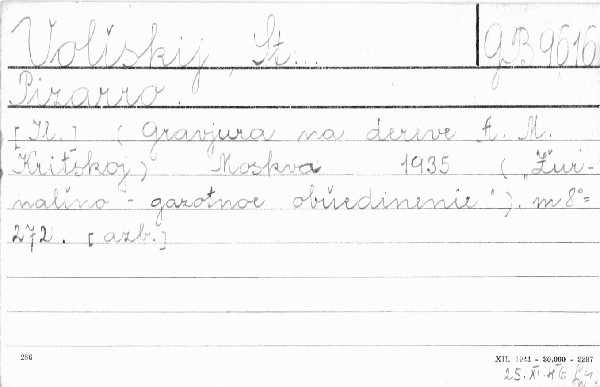 Volískij, St... GB 9616
Pizarro.
[Il.] (Gravjura na dereve t. M.
Kritskoj) Moskva 1935 („Žur-
nalíno - gazotnoe obúedinenie"). m 8°=
272. [azb.]
286 XII. 1941 - 30.000 - 2297
25. XI. 46